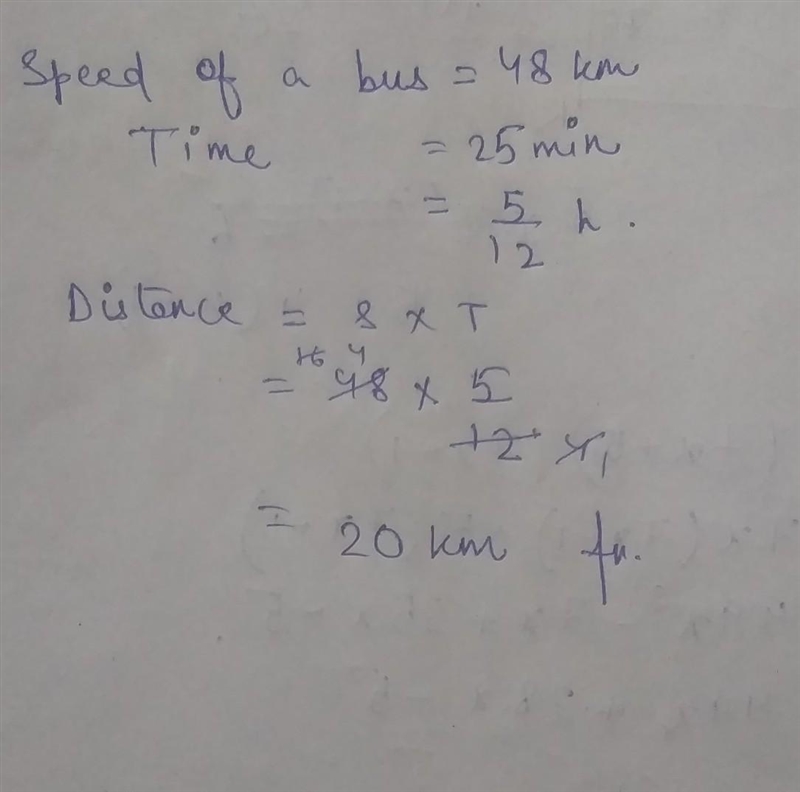 Speed of a bus = 48 km
Time = 25 min
= 5/12 h.
Distance = S x T
16 4
= 48 x 5
12 4 1
= 20 km